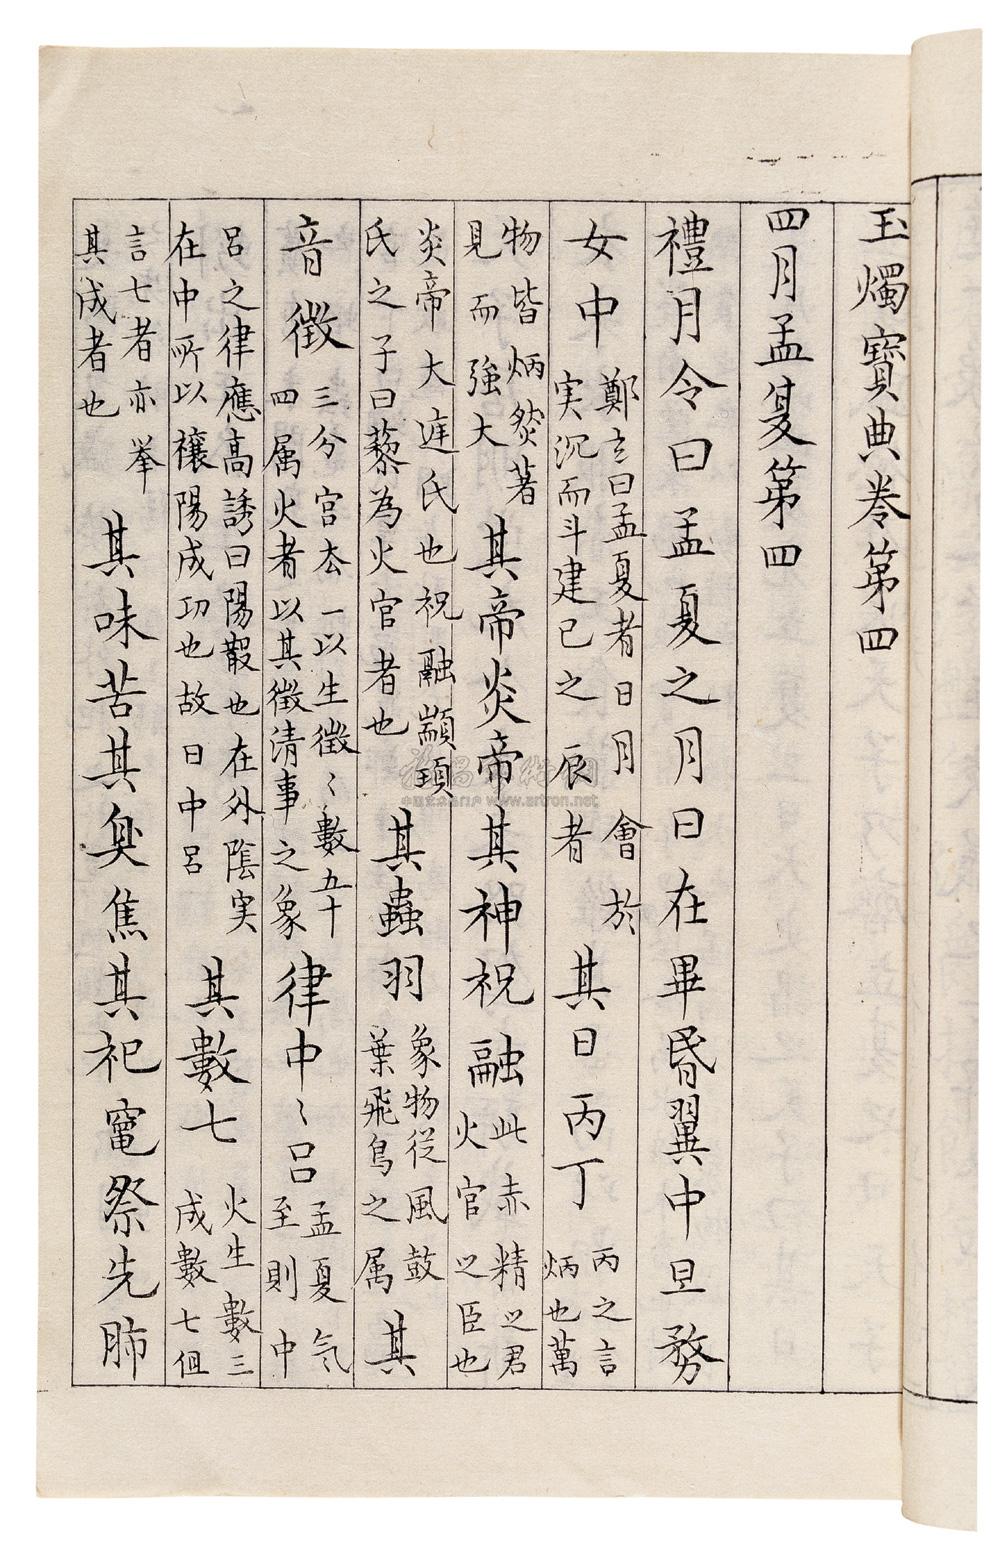 玉燭寶典卷第四
四月孟夏第四
禮月令曰孟夏之月日在畢昏翼中旦務
女中
鄭玄曰孟夏者日月會於
実沉而斗建巳之辰者
其日丙丁
丙之言
炳也萬
物皆炳然著
見而強大
其帝炎帝其神祝融
此赤精之君
火官之臣也
炎帝大庭氏也祝融顓頊
氏之子曰藜為火官者也
其蟲羽
象物從風鼓
葉飛鳥之属
其
音徵
三分宮去一以生徵〻數五十
四属火者以其徵清事之象
律中〻呂
孟夏气
至則中
呂之律應高誘曰陽散也在外陰実
在中所以穣陽成功也故曰中呂
其數七
火生數三
成數七但
言七者亦挙
其成者也
其味苦其臭焦其祀竈祭先肺
www.artron.net